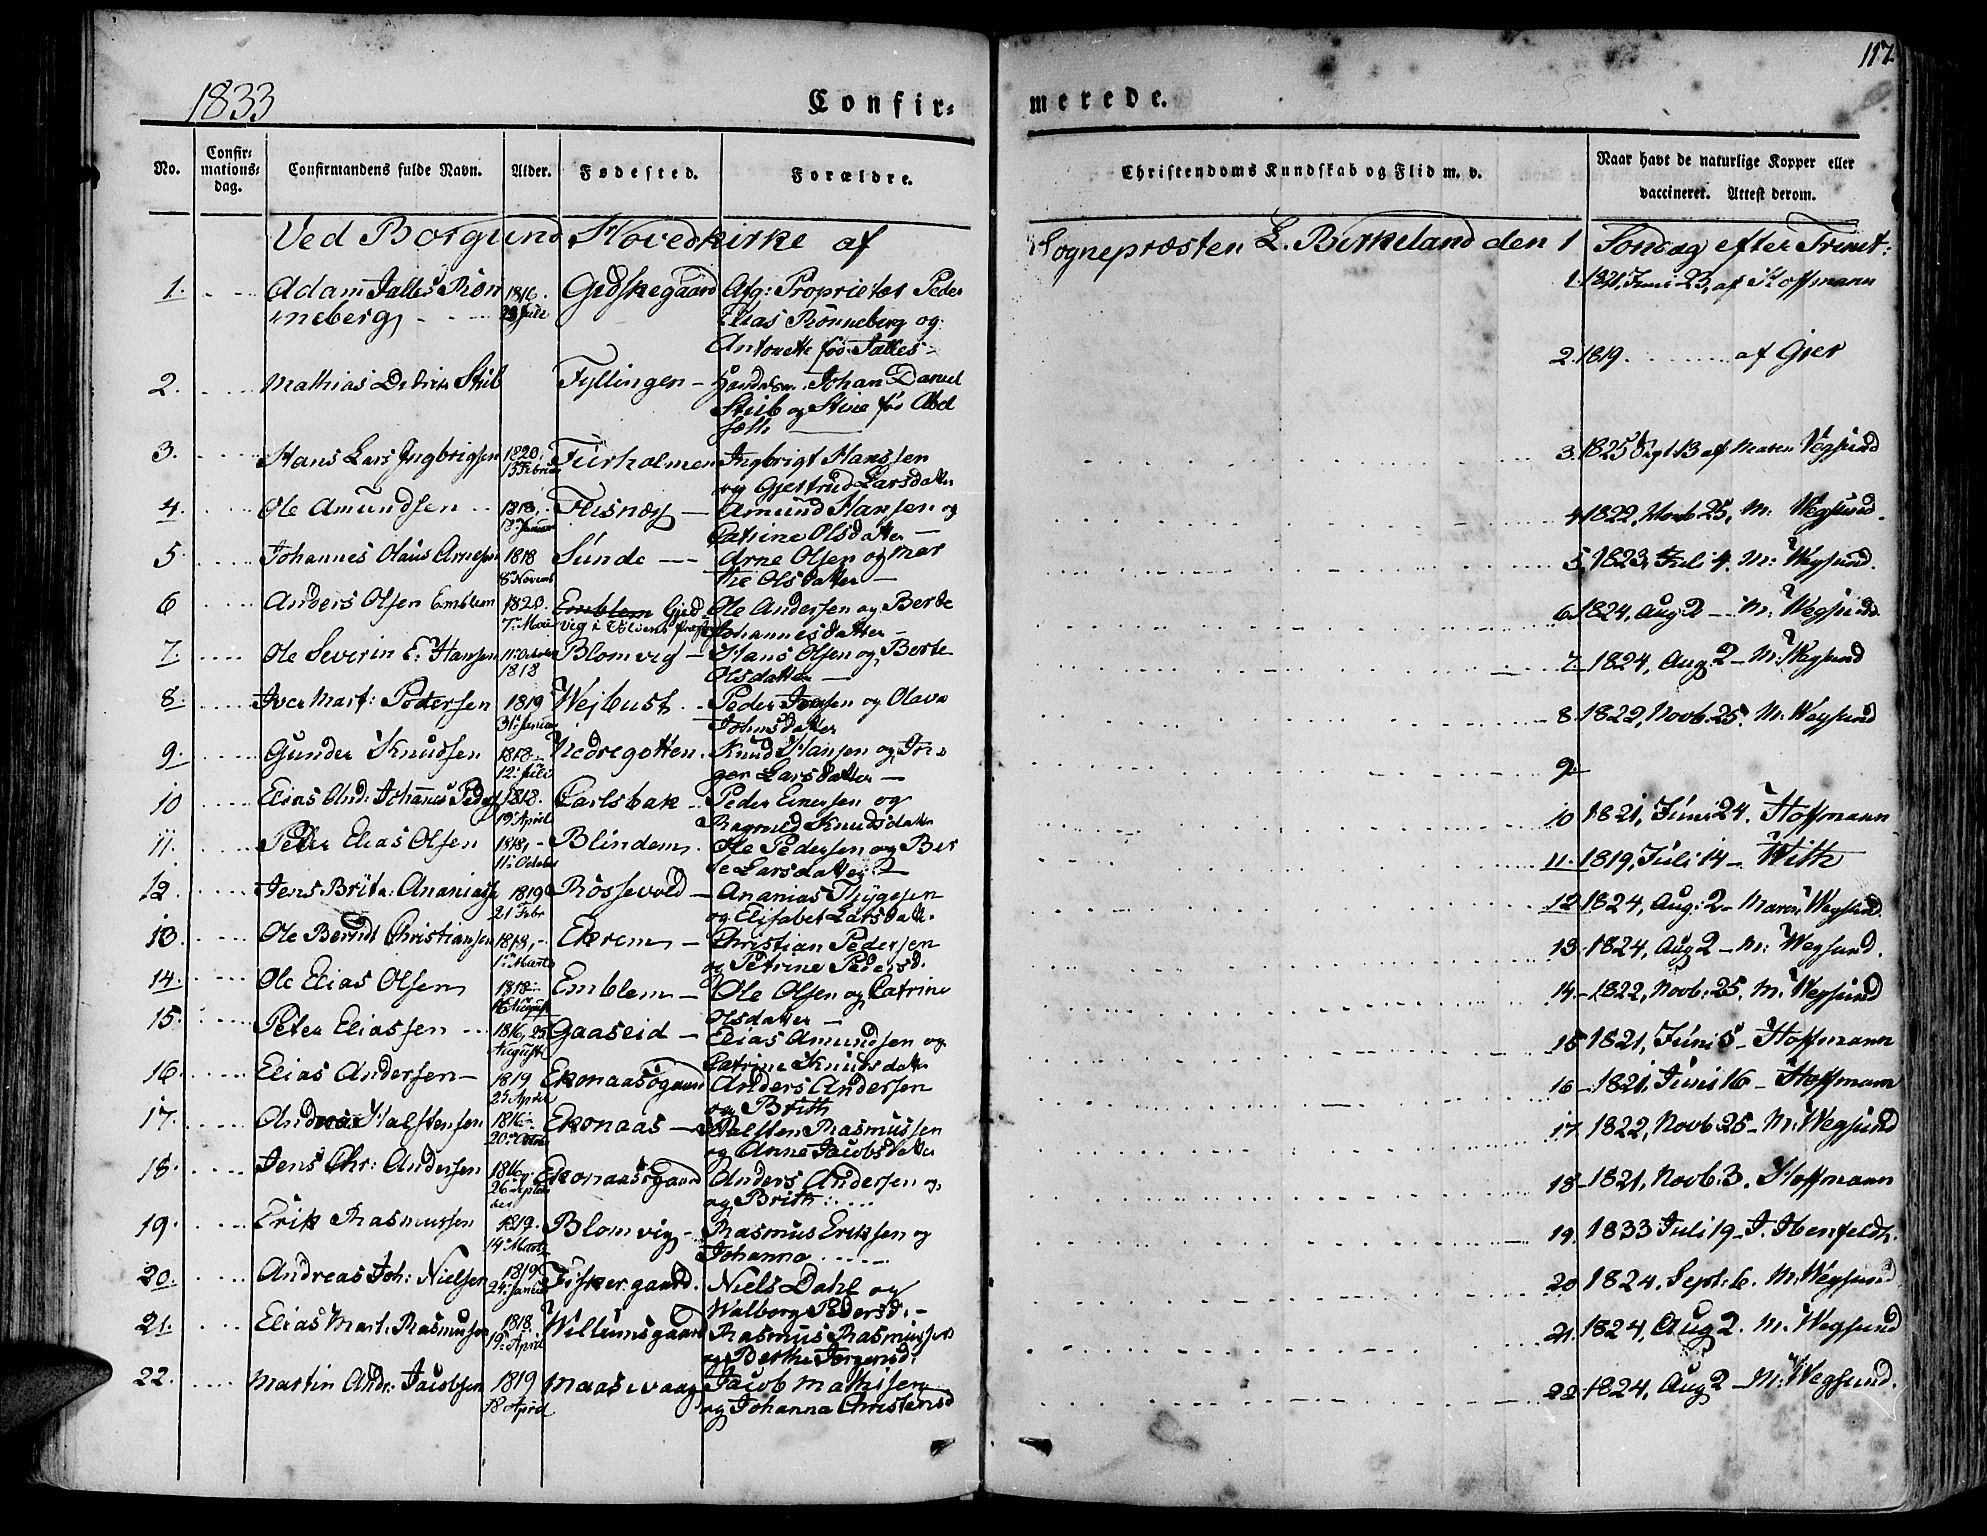 117
1833
Confir-
merede.
No.
Confir-
mations-
dag.
Confirmandens fulde Navn.
Alder.
Fødested.
Forældre.
Christendoms Kundskab og Flid m. v.
Naar havt de naturlige Kopper eller
vaccineret. Attest derom.
Ved Borgund Hovedkirke af
Sognepræsten L. Birkeland den 1 Søndag efter Trinit:
1. Adam Jalles Røn 1816. Gidskegaard Afg: Proprietær Peder
neberg Elias Rønneberg og
Antonette fød Jalles
1. 1821, Juni 23, af Hoffmann
2. Mathias Stub Fyllingen Johan Daniel
Stub og Stine
2. 1819. af Gjer
3. Hans Lars Ingbrigtsen 1820. Furholmen Ingbrigt Hanssen
og Gjertrud Larsdatter
3. 1825 Sept 13 af Maren Vegsund
4. Ole Amundsen 1818, Flisnæs Amund Hansen og
Catrine Olsdatter
4 1822, Novb 25, M: Wegsund.
5 Johannes Olaus Arnesen 1818 Sunde Arne Olsen og Mar
8 Novemb the Olsdatter
5. 1823, Juli 4. M: Wegsund.
6 Anders Olsen Emblem 1820. Emblem Gjed Ole Andersen og Berte
7de Mai vig i Johannesdatter
6. 1824, Aug: 2 M: Wegsund
7. Ole Severin E: Hansen 11 October Blomvig Hans Olsen og Berte
1818 Olsdatter
7 1824, Aug 2 M: Wegsund
8. Iver Mart: Pedersen 1819 Wejbust Peder Iversen og Olava
31 Januar Johnsdatter
8. 1822, Novb 25. M: Wegsund
9. Gunder Knudsen 1818 Nedregotten Knud Hansen og In
12 Juli ger Larsdatter
9
10 Elias And: Johannes Peders 1818. Carlsbak Peder Einersen og
19 April Ragnild Knudsdatter
10 1821, Juni 24. Hoffmann
11. Peter Elias Olsen 1818, Blindem Ole Pedersen og Ber
11 October te Larsdatter
11. 1819, Juli 14 With
12. Jens Brita: Ananiasse 1819 Røssevold Ananias Thygesen
21 Febr og Elisabet Larsdatt.
12 1824, Aug: 2 Maren Wegsund
13. Ole Berndt Christiansen 1818, Ekrem Christian Pedersen
1 Marts og Petrine Pedersd.
13 1824, Aug 2 M: Wegsund.
14. Ole Elias Olsen 1818 Emblem Ole Olsen og Catrine
16 August Olsdatter
14 1822, Novb. 25. M. Wegsund
15. Peter Eliassen 1816, 25 Gaaseid Elias Amundsen og
August Catrine Knudsdatter
15 1821, Juni 5 Hoffmann
16. Elias Andersen 1819 Ekonaasøgaard Anders Andersen
25 April og Brith
16 1821, Juni 16 Hoffmann
17. Andreas Halstensen 1816 Ekonaas Halsten Rasmussen
20 Octbr og Anne Jacobsdatter
17. 1822, Novb: 25 M: Wegsund
18. Jens Chr: Andersen 1816, Ekonaasøgaard Anders Andersen
26 Septem og Brith
ber
18 1821, Novb: 3. Hoffmann
19. Erik Rasmussen 1819. Blomvig Rasmus Eriksen og
14 Marts Johanna
19. 1833 Juli 19 J. Ibenfeldt.
20. Andreas Joh: Nielsen 1819 Fiskergaard Niels Dahl og
24 Januar Walborg Pedersd.
20 1824. Sept: 6. M: Wegsund
21. Elias Mart: Rasmusen 1818. Willumsgaard Rasmus Rasmussen
19 April og Berthe Jørgensd.
21. 1824, Aug 2. M. Wegsund
22. Martin Andr: Jacobsen 1819 Maasevaag Jacob Mathisen
18 April og Johanna Christensd
22 1824, Aug 2 M: Wegsund.